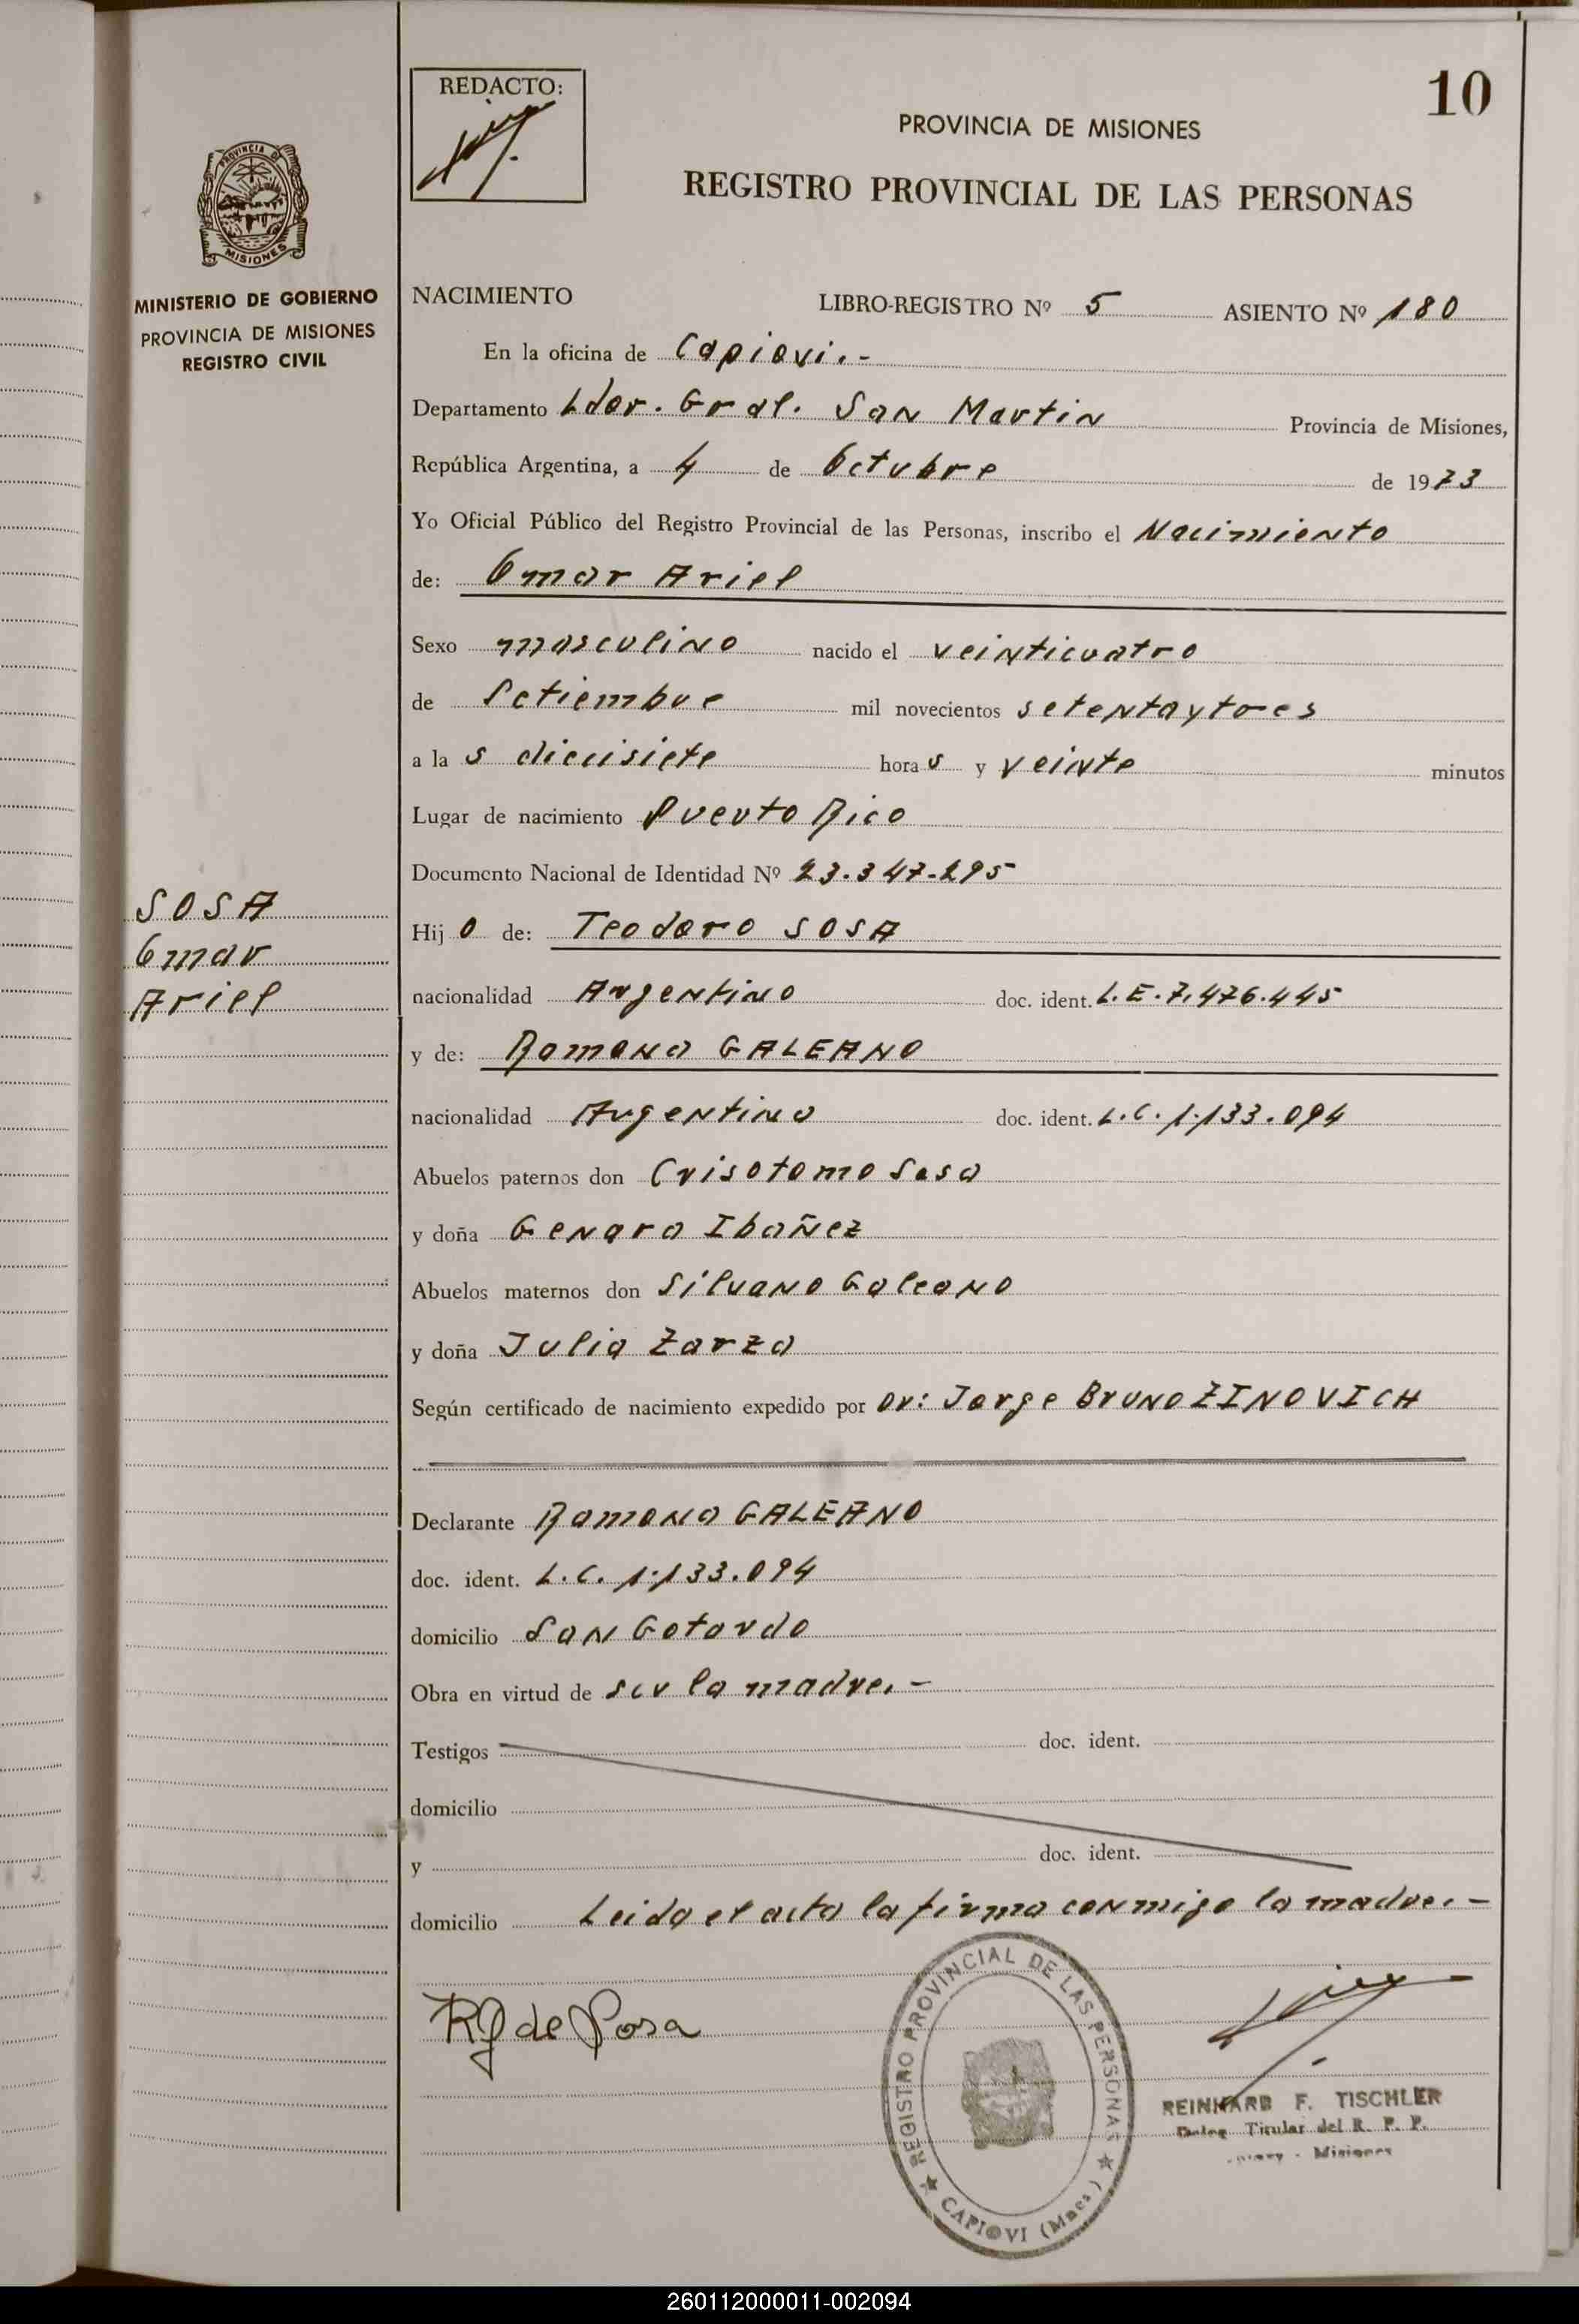 10
REDACTO:
PROVINCIA DE MISIONES
REGISTRO PROVINCIAL DE LAS PERSONAS
PROVINCIA DE
MISIONES
MINISTERIO DE GOBIERNO
PROVINCIA DE MISIONES
REGISTRO CIVIL
NACIMIENTO LIBRO-REGISTRO Nº 5 ASIENTO Nº 180
En la oficina de Capiovi.-
Departamento Ldor. Gral. San Martin Provincia de Misiones,
República Argentina, a 4 de Octubre de 1973
Yo Oficial Público del Registro Provincial de las Personas, inscribo el Nacimiento
de: Omar Ariel
Sexo masculino nacido el veinticuatro
de Setiembre mil novecientos setentaytres
a las diecisiete horas y veinte minutos
Lugar de nacimiento Puerto Rico
Documento Nacional de Identidad Nº 23.347.295
SOSA
Omar
Ariel
Hijo de: Teodoro SOSA
nacionalidad Argentino doc. ident. L.E.7.476.445
y de: Ramona GALEANO
nacionalidad Argentina doc. ident. L.C. 1.133.094
Abuelos paternos don Crisotomo Sosa
y doña Genara Ibañez
Abuelos maternos don Silvano Galeano
y doña Julia Zarza
Según certificado de nacimiento expedido por Dr: Jorge Bruno ZINOVICH
Declarante Ramona GALEANO
doc. ident. L.C. 1.133.094
domicilio San Gotardo
Obra en virtud de ser la madre.-
Testigos doc. ident.
domicilio
y doc. ident.
domicilio Leida el acta la firma conmigo la madre.-
RG de Sosa
REGISTRO PROVINCIAL DE LAS PERSONAS
CAPIOVI (Mnes)
REINHARD F. TISCHLER
Deleg. Titular del R. P. P.
Misiones
260112000011-002094